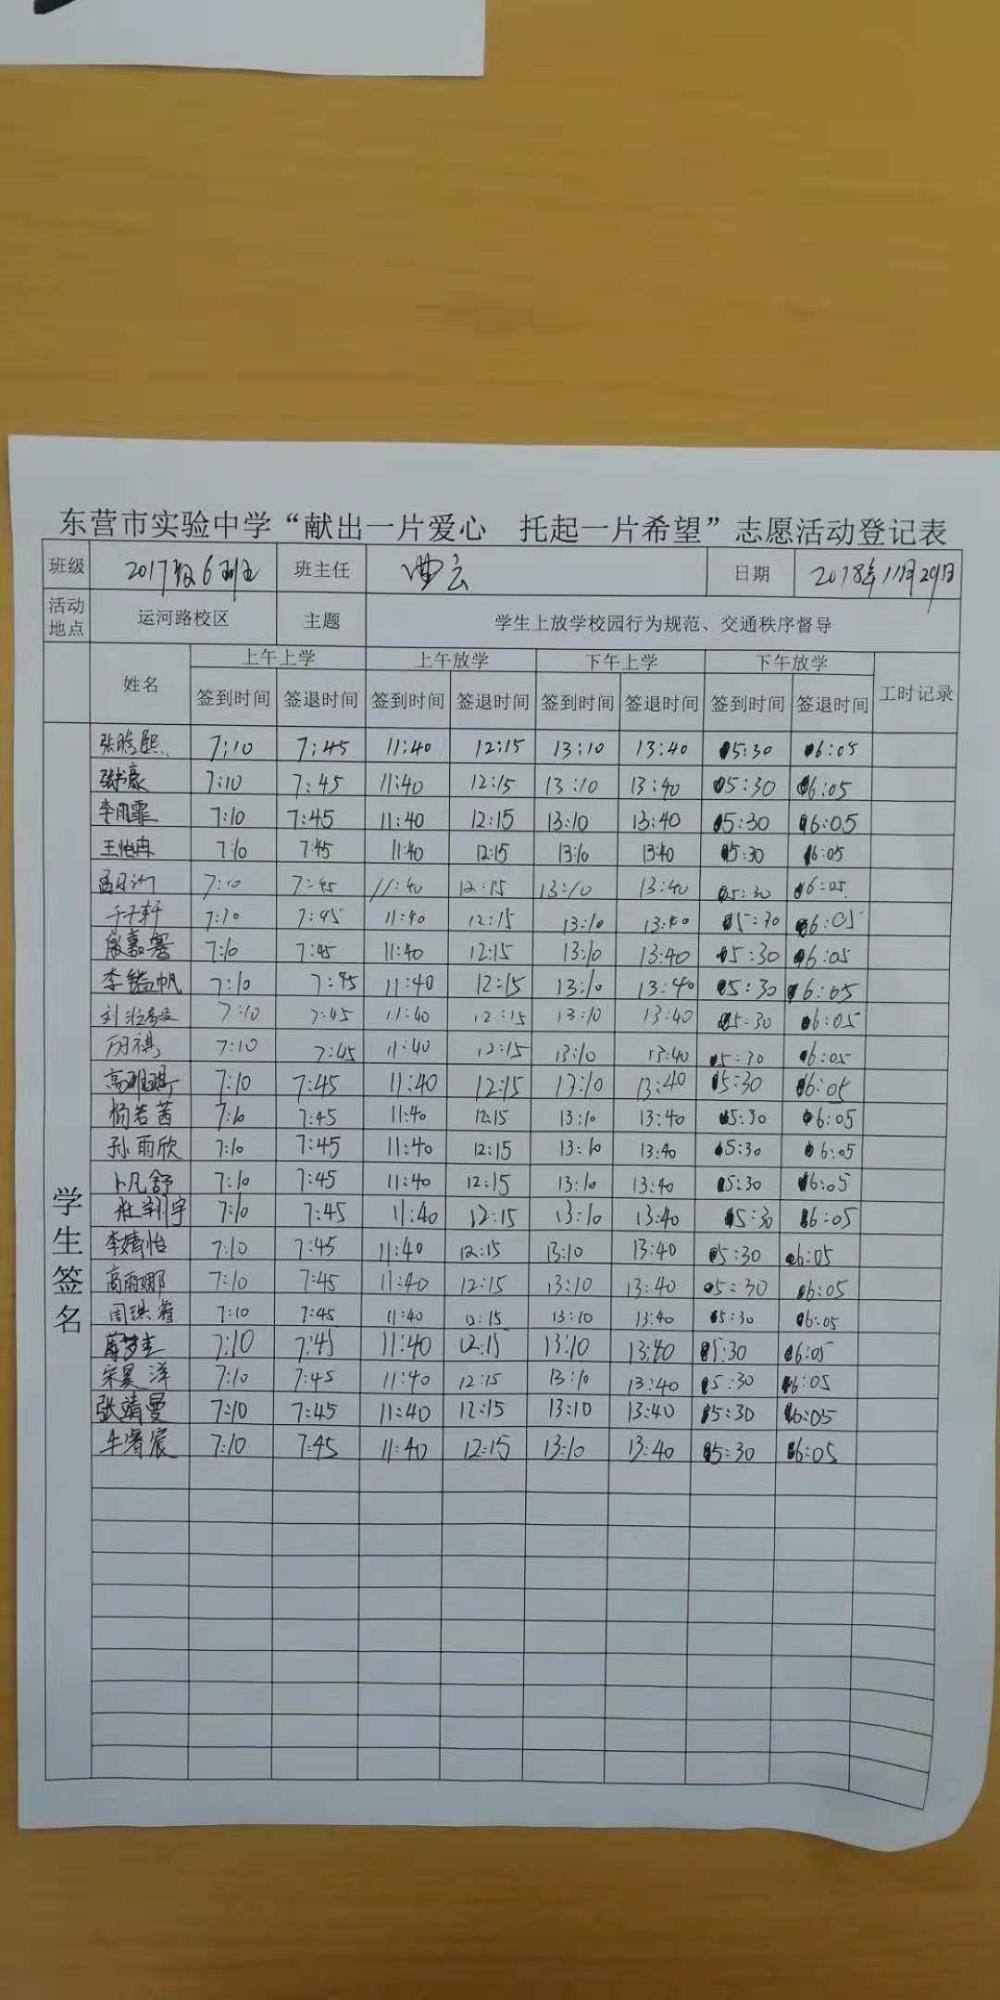 东营市实验中学“献出一片爱心 托起一片希望”志愿活动登记表
班级 2017级6班 班主任 曲云 日期 2018年11月29日
活动地点 运河路校区 主题 学生上放学校园行为规范、交通秩序督导
姓名 上午上学 上午放学 下午上学 下午放学 工时记录
签到时间 签退时间 签到时间 签退时间 签到时间 签退时间 签到时间 签退时间
学生签名
7:10 7:45 11:40 12:15 13:10 13:40 5:30 6:05
7:10 7:45 11:40 12:15 13:10 13:40 5:30 6:05
7:10 7:45 11:40 12:15 13:10 13:40 5:30 6:05
王怡冉 7:10 7:45 11:40 12:15 13:10 13:40 5:30 6:05
7:10 7:45 11:40 12:15 13:10 13:40 5:30 6:05
于子轩 7:10 7:45 11:40 12:15 13:10 13:40 5:30 6:05
7:10 7:45 11:40 12:15 13:10 13:40 5:30 6:05
7:10 7:45 11:40 12:15 13:10 13:40 5:30 6:05
7:10 7:45 11:40 12:15 13:10 13:40 5:30 6:05
7:10 7:45 11:40 12:15 13:10 13:40 5:30 6:05
7:10 7:45 11:40 12:15 13:10 13:40 5:30 6:05
杨若茜 7:10 7:45 11:40 12:15 13:10 13:40 5:30 6:05
孙雨欣 7:10 7:45 11:40 12:15 13:10 13:40 5:30 6:05
卜凡舒 7:10 7:45 11:40 12:15 13:10 13:40 5:30 6:05
7:10 7:45 11:40 12:15 13:10 13:40 5:30 6:05
李婧怡 7:10 7:45 11:40 12:15 13:10 13:40 5:30 6:05
高丽娜 7:10 7:45 11:40 12:15 13:10 13:40 5:30 6:05
7:10 7:45 11:40 12:15 13:10 13:40 5:30 6:05
7:10 7:45 11:40 12:15 13:10 13:40 5:30 6:05
宋昊洋 7:10 7:45 11:40 12:15 13:10 13:40 5:30 6:05
张靖曼 7:10 7:45 11:40 12:15 13:10 13:40 5:30 6:05
牛睿宸 7:10 7:45 11:40 12:15 13:10 13:40 5:30 6:05